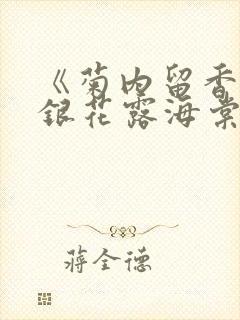 《菊内留香
銀花露海棠
蔣全德